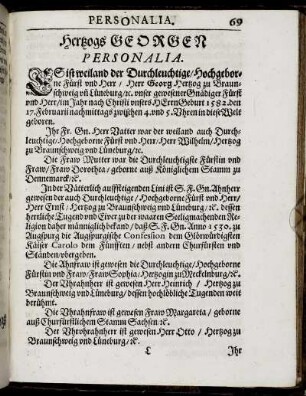 PERSONALIA. 69
Hertzogs GEORGEN
PERSONALIA.
ES ist weiland der Durchleuchtige/Hochgebor-
ne Fürst vnd Herr / Herr Georg Hertzog zu Braun-
schweig vñ Lüneburg/rc. vnser gewesener Gnädiger Fürst
vnd Herr/im Jahr nach Christi vnsers HErrn Geburt 1582. den
17. Februarii nachmittags zwischen 4. vnd 5. Vhren in diese Welt
geboren.
Ihr Fr. Gn. Herr Vatter war der weiland auch Durch-
leuchtige/Hochgeborne Fürst vnd Herr/Herr Wilhelm/Hertzog
zu Braunschweig vnd Lüneburg/rc.
Die Fraw Mutter war die Durchleuchtigste Fürstin vnd
Fraw/Fraw Dorothea/ geborne auß Königlichem Stamm zu
Dennemarck/rc.
In der Vätterlich auffsteigenden Lini ist S. F. Gn. Ahnherr
gewesen der auch Durchleuchtige / Hochgeborne Fürst vnd Herr/
Herr Ernst / Hertzog zu Braunschweig vnd Lüneburg/rc. dessen
herrliche Tugend vnd Eiver zu der waaren Seeligmachenden Re-
ligion daher männiglich bekand / daß S. F. Gn. Anno 1530. zu
Augspurg die Augspurgische Confession dem Glorwürdigsten
Käiser Carolo dem Fünfften / nebst andern Churfürsten vnd
Ständen/vbergeben.
Die Ahnfraw ist gewesen die Durchleuchtige/Hochgeborne
Fürstin vnd Fraw/Fraw Sophia/Hertzogin zu Meckelnburg/rc.
Der Vhrahnherr ist gewesen Herr Heinrich / Hertzog zu
Braunschweig vnd Lüneburg/ dessen hochlöbliche Tugenden weit
berühmt.
Die Vhranhnfraw ist gewesen Fraw Margareta / geborne
auß Churfürstlichem Stamm Sachsen / rc.
Der Vhrvhrahnherr ist gewesen Herr Otto / Hertzog zu
Braunschweig vnd Lüneburg/rc.
C Ihr